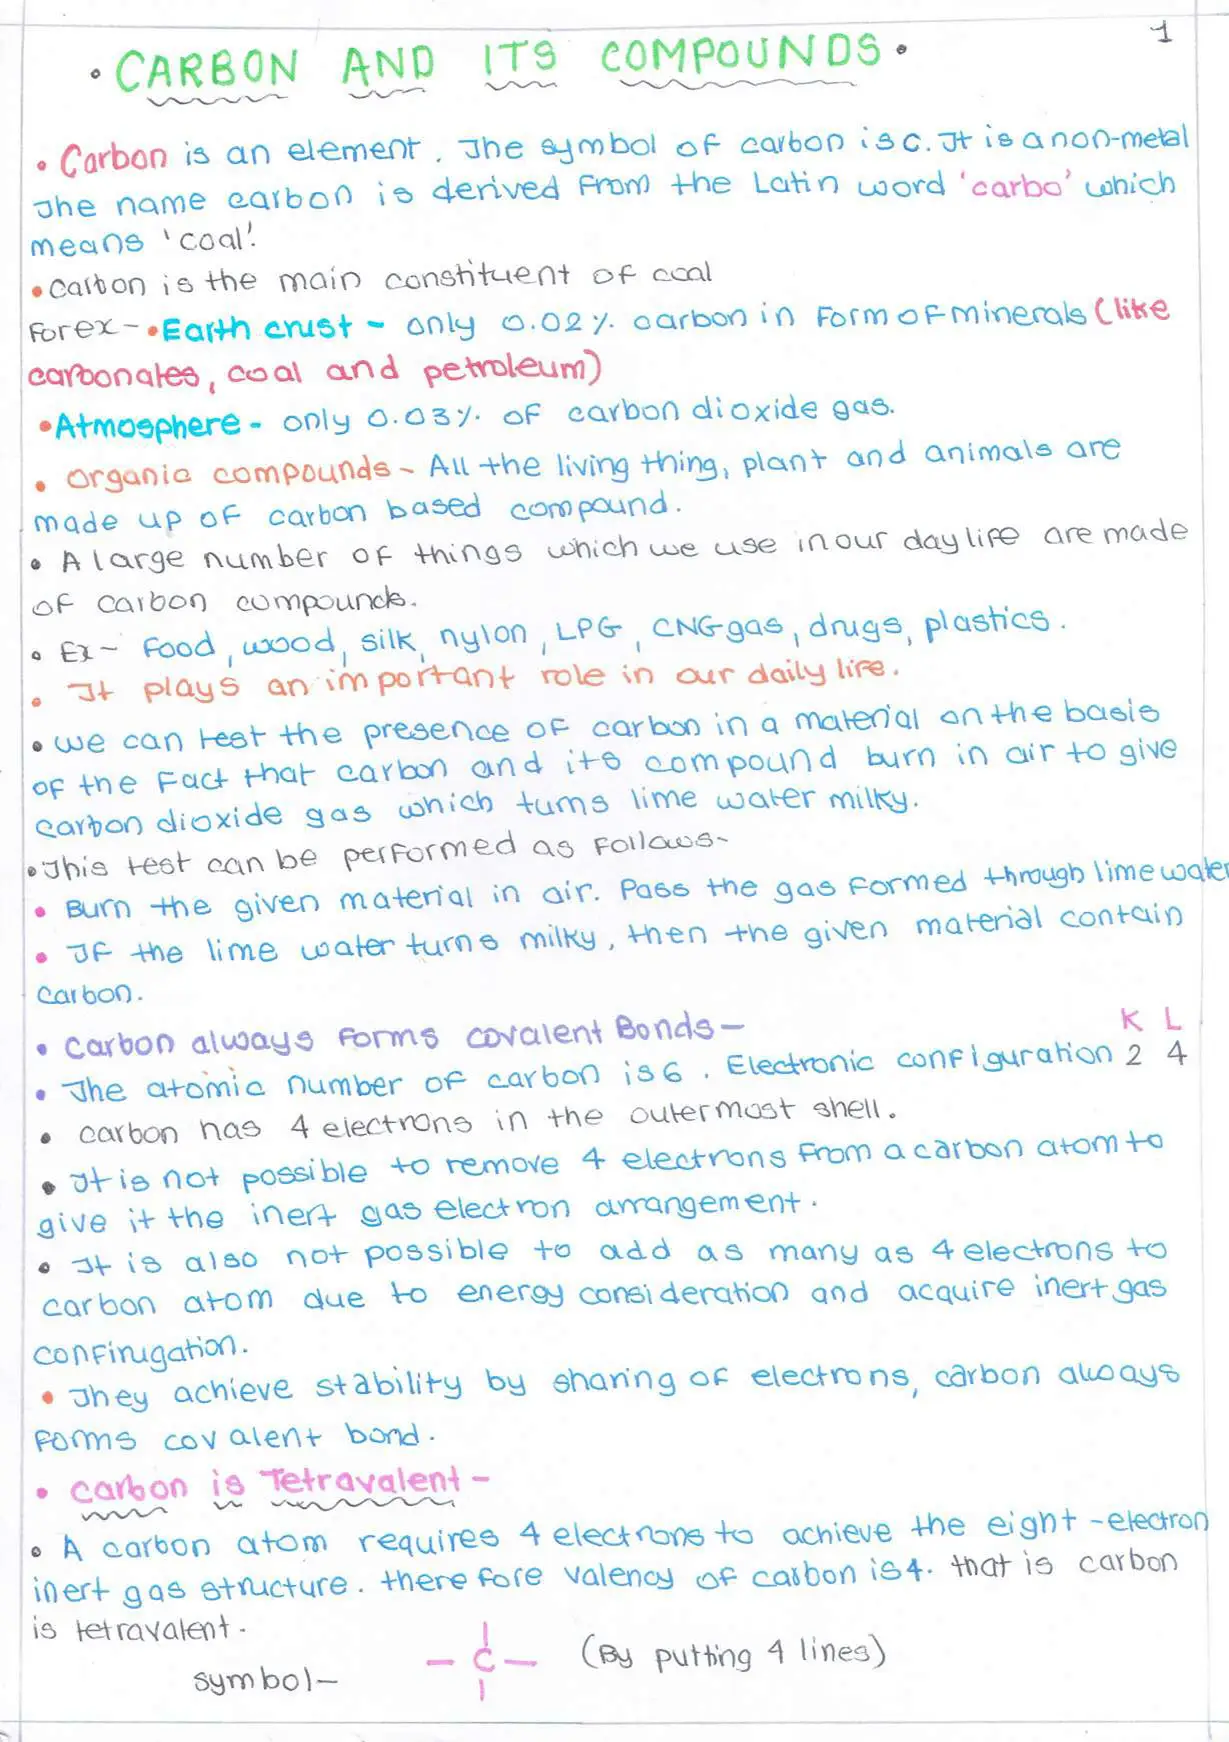 1
• CARBON AND ITS COMPOUNDS •
• Carbon is an element. The symbol of carbon is C. It is a non-metal
The name carbon is derived from the Latin word 'carbo' which
means 'coal'.
• Carbon is the main constituent of coal
For ex - • Earth crust - only 0.02% carbon in form of minerals (like
carbonates, coal and petroleum)
• Atmosphere - only 0.03% of carbon dioxide gas.
• Organic compounds - All the living thing, plant and animals are
made up of carbon based compound.
• A large number of things which we use in our day life are made
of carbon compounds.
• Ex - Food, wood, silk, nylon, LPG, CNG gas, drugs, plastics.
• It plays an important role in our daily life.
• we can test the presence of carbon in a material on the basis
of the fact that carbon and its compound burn in air to give
carbon dioxide gas which turns lime water milky.
• This test can be performed as follows-
• Burn the given material in air. Pass the gas formed through lime water
• If the lime water turns milky, then the given material contain
carbon.
• Carbon always forms covalent Bonds -
K L
• The atomic number of carbon is 6. Electronic configuration 2 4
• carbon has 4 electrons in the outermost shell.
• It is not possible to remove 4 electrons from a carbon atom to
give it the inert gas electron arrangement.
• It is also not possible to add as many as 4 electrons to
carbon atom due to energy consideration and acquire inert gas
confirugation.
• They achieve stability by sharing of electrons, carbon always
forms covalent bond.
• Carbon is Tetravalent -
• A carbon atom requires 4 electrons to achieve the eight-electron
inert gas structure. therefore valency of carbon is 4. that is carbon
is tetravalent.
symbol - – C – (By putting 4 lines)